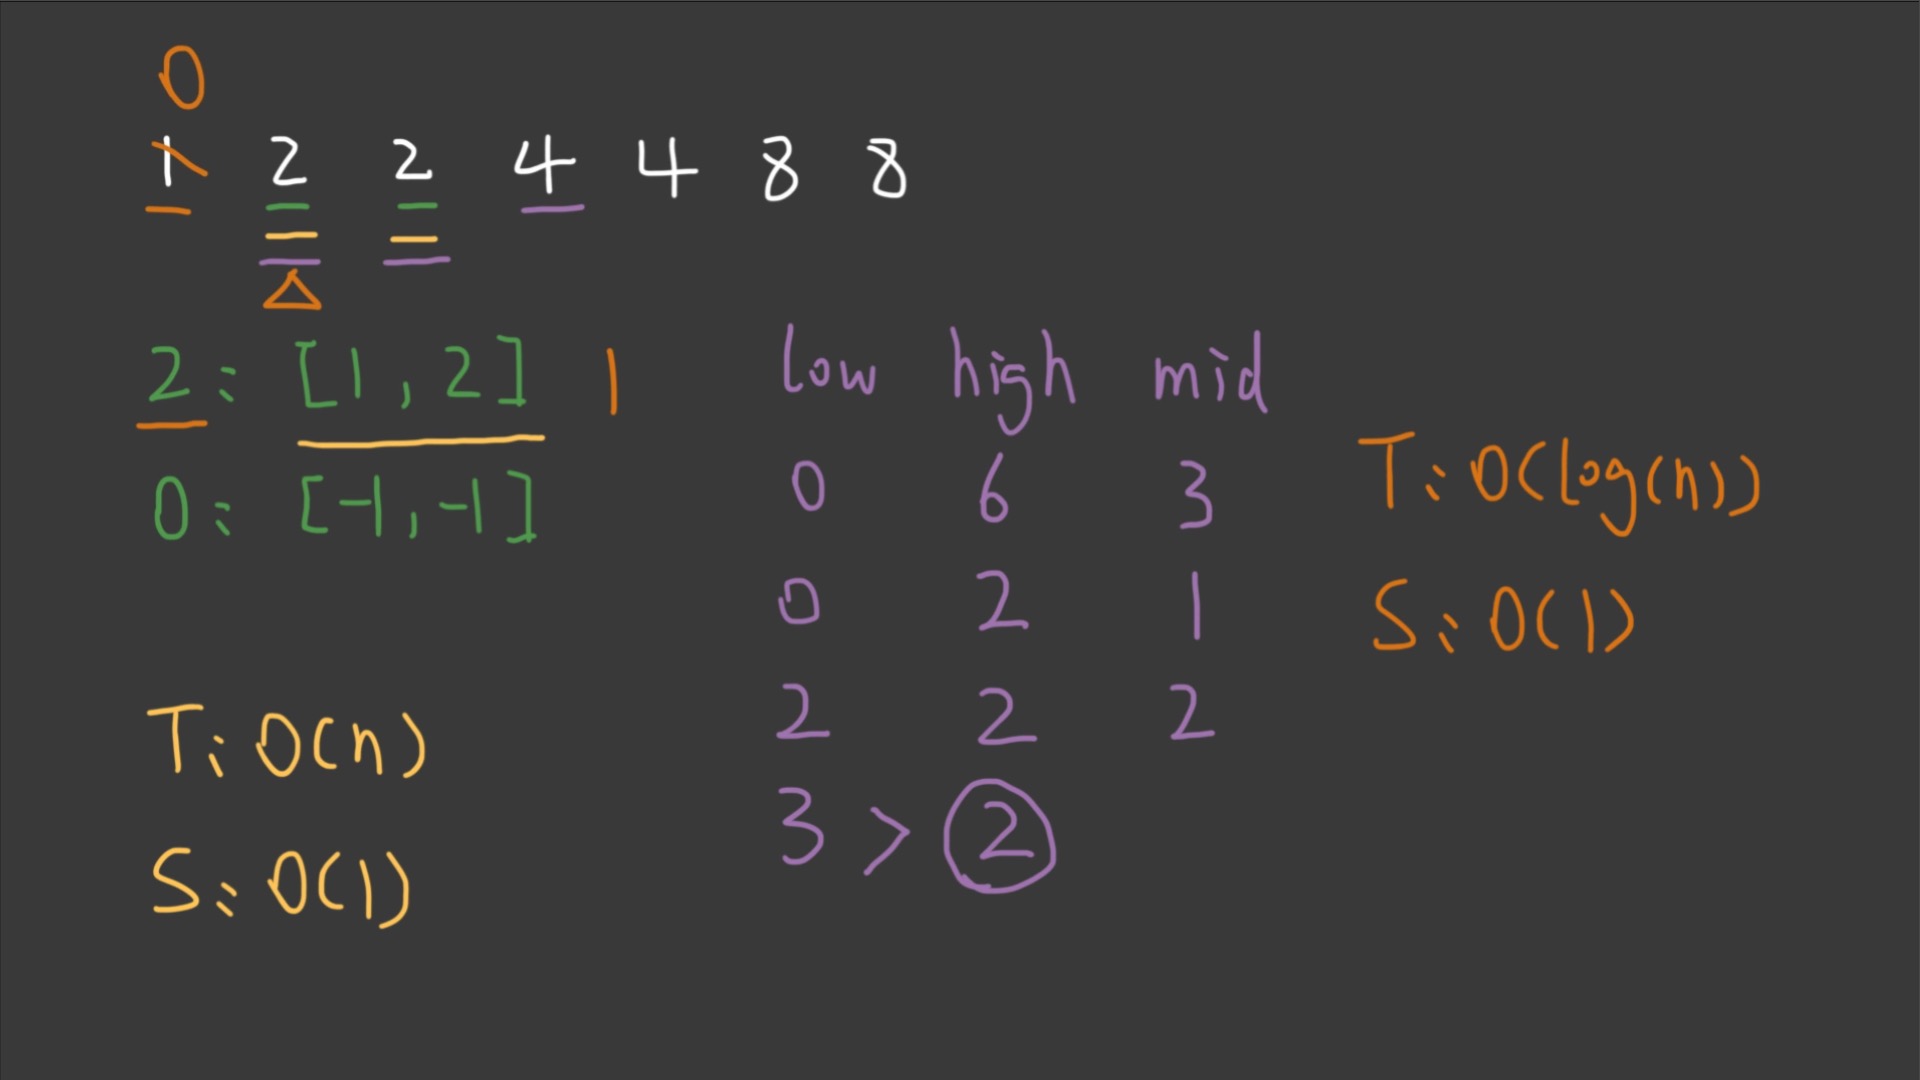 0
1 2 2 4 4 8 8
2: [1, 2] 1
0: [-1, -1]
T: O(n)
S: O(1)
low high mid
0 6 3
0 2 1
2 2 2
3 > 2
T: O(log(n))
S: O(1)